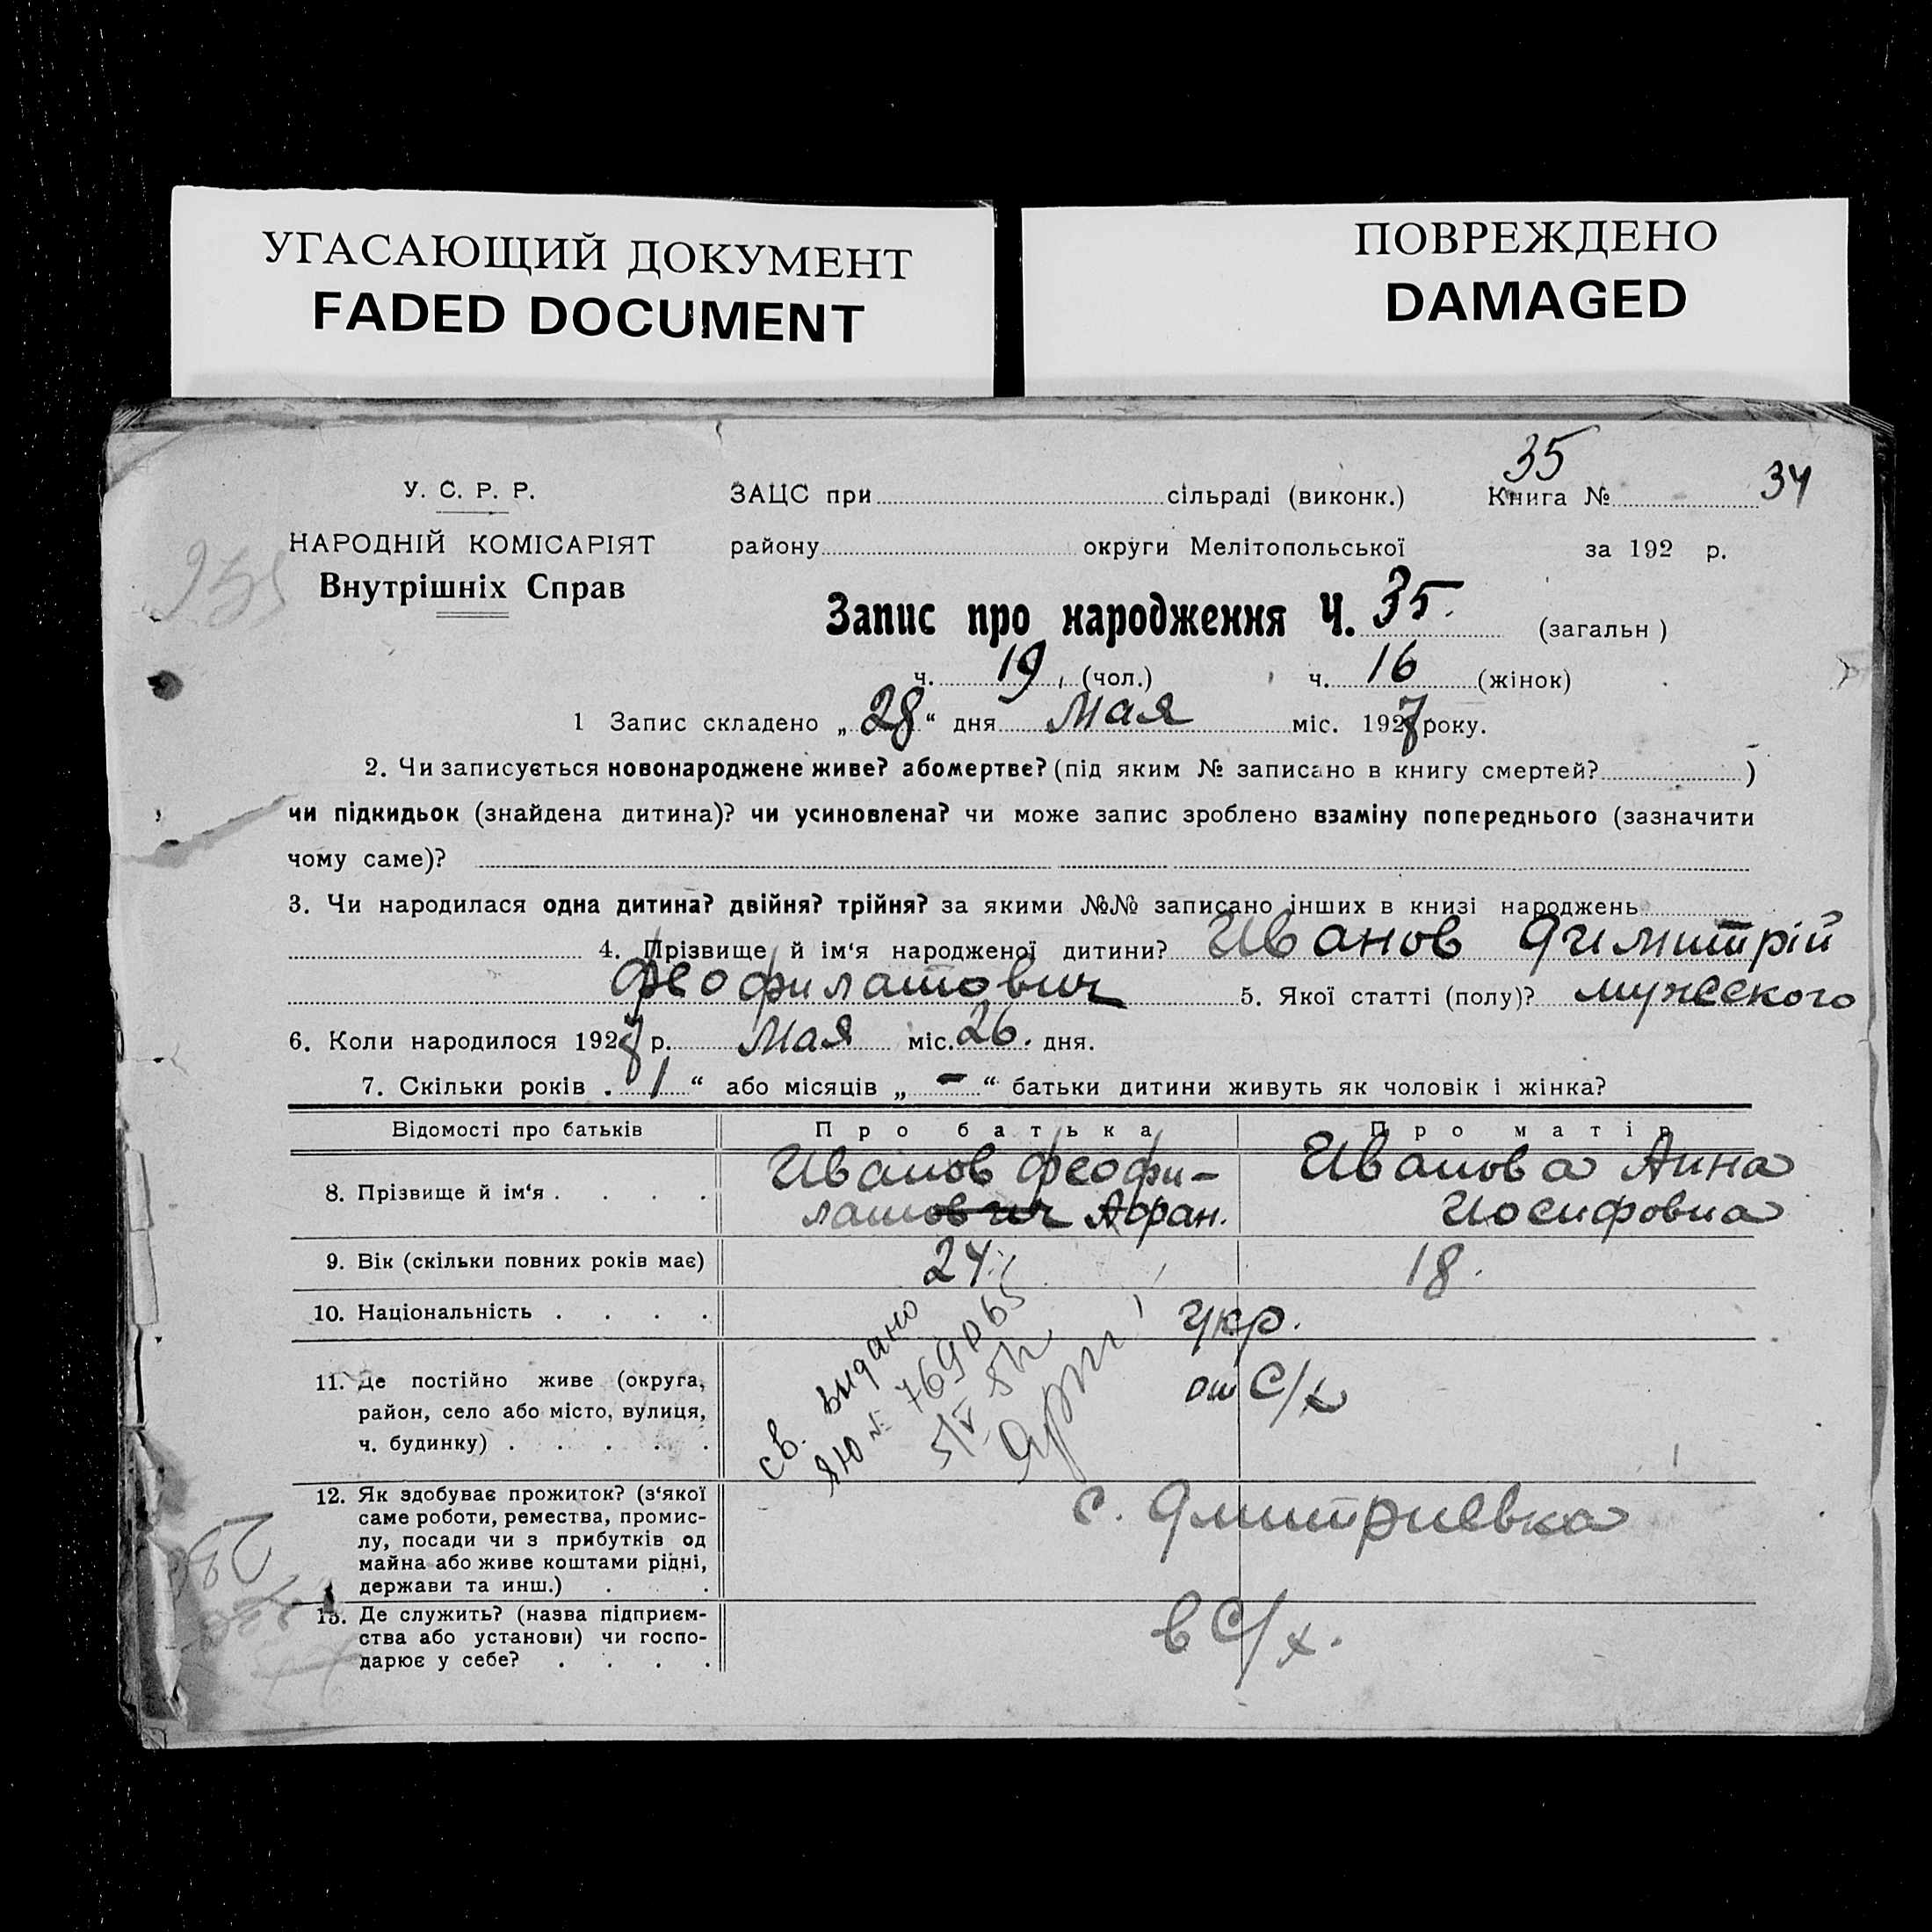 УГАСАЮЩИЙ ДОКУМЕНТ
FADED DOCUMENT
ПОВРЕЖДЕНО
DAMAGED
35
34
У. С. Р. Р.
ЗАЦС при сільраді (виконк.) Книга №
НАРОДНІЙ КОМІСАРІЯТ
району округи Мелітопольської за 192 р.
Внутрішніх Справ
Запис про народження Ч. 35. (загальн )
ч. 19 (чол.) ч. 16 (жінок)
1 Запис складено „ 28 “ дня Мая міс. 1927 року.
2. Чи записується новонароджене живе? або мертве? (під яким № записано в книгу смертей? )
чи підкидьок (знайдена дитина)? чи усиновлена? чи може запис зроблено взаміну попереднього (зазначити
чому саме)?
3. Чи народилася одна дитина? двійня? трійня? за якими №№ записано інших в книзі народжень
4. Прізвище й ім‘я народженої дитини? Иванов Димитрій
Феофилатович 5. Якої статті (полу)? мужеского
6. Коли народилося 1927 р. Мая міс. 26. дня.
7. Скільки років . 1 “ або місяців „ - “ батьки дитини живуть як чоловік і жінка?
Відомості про батьків Про батька Про матір
8. Прізвище й ім‘я . . . .
Иванов Феофи-
латович Афран.
Иванова Анна
Иосифовна
9. Вік (скільки повних років має) 24 18.
10. Національність . . . . укр.
11. Де постійно живе (округа,
район, село або місто, вулиця,
ч. будинку) . . . . .
от С/х
св. видано
ЯЮ № 769065
12. Як здобуває прожиток? (з‘якої
саме роботи, ремества, промис-
лу, посади чи з прибутків од
майна або живе коштами рідні,
держави та инш.) . .
с. Дмитриевка
13. Де служить? (назва підприєм-
ства або установи) чи госпо-
дарює у себе? . . . .
в С/х.